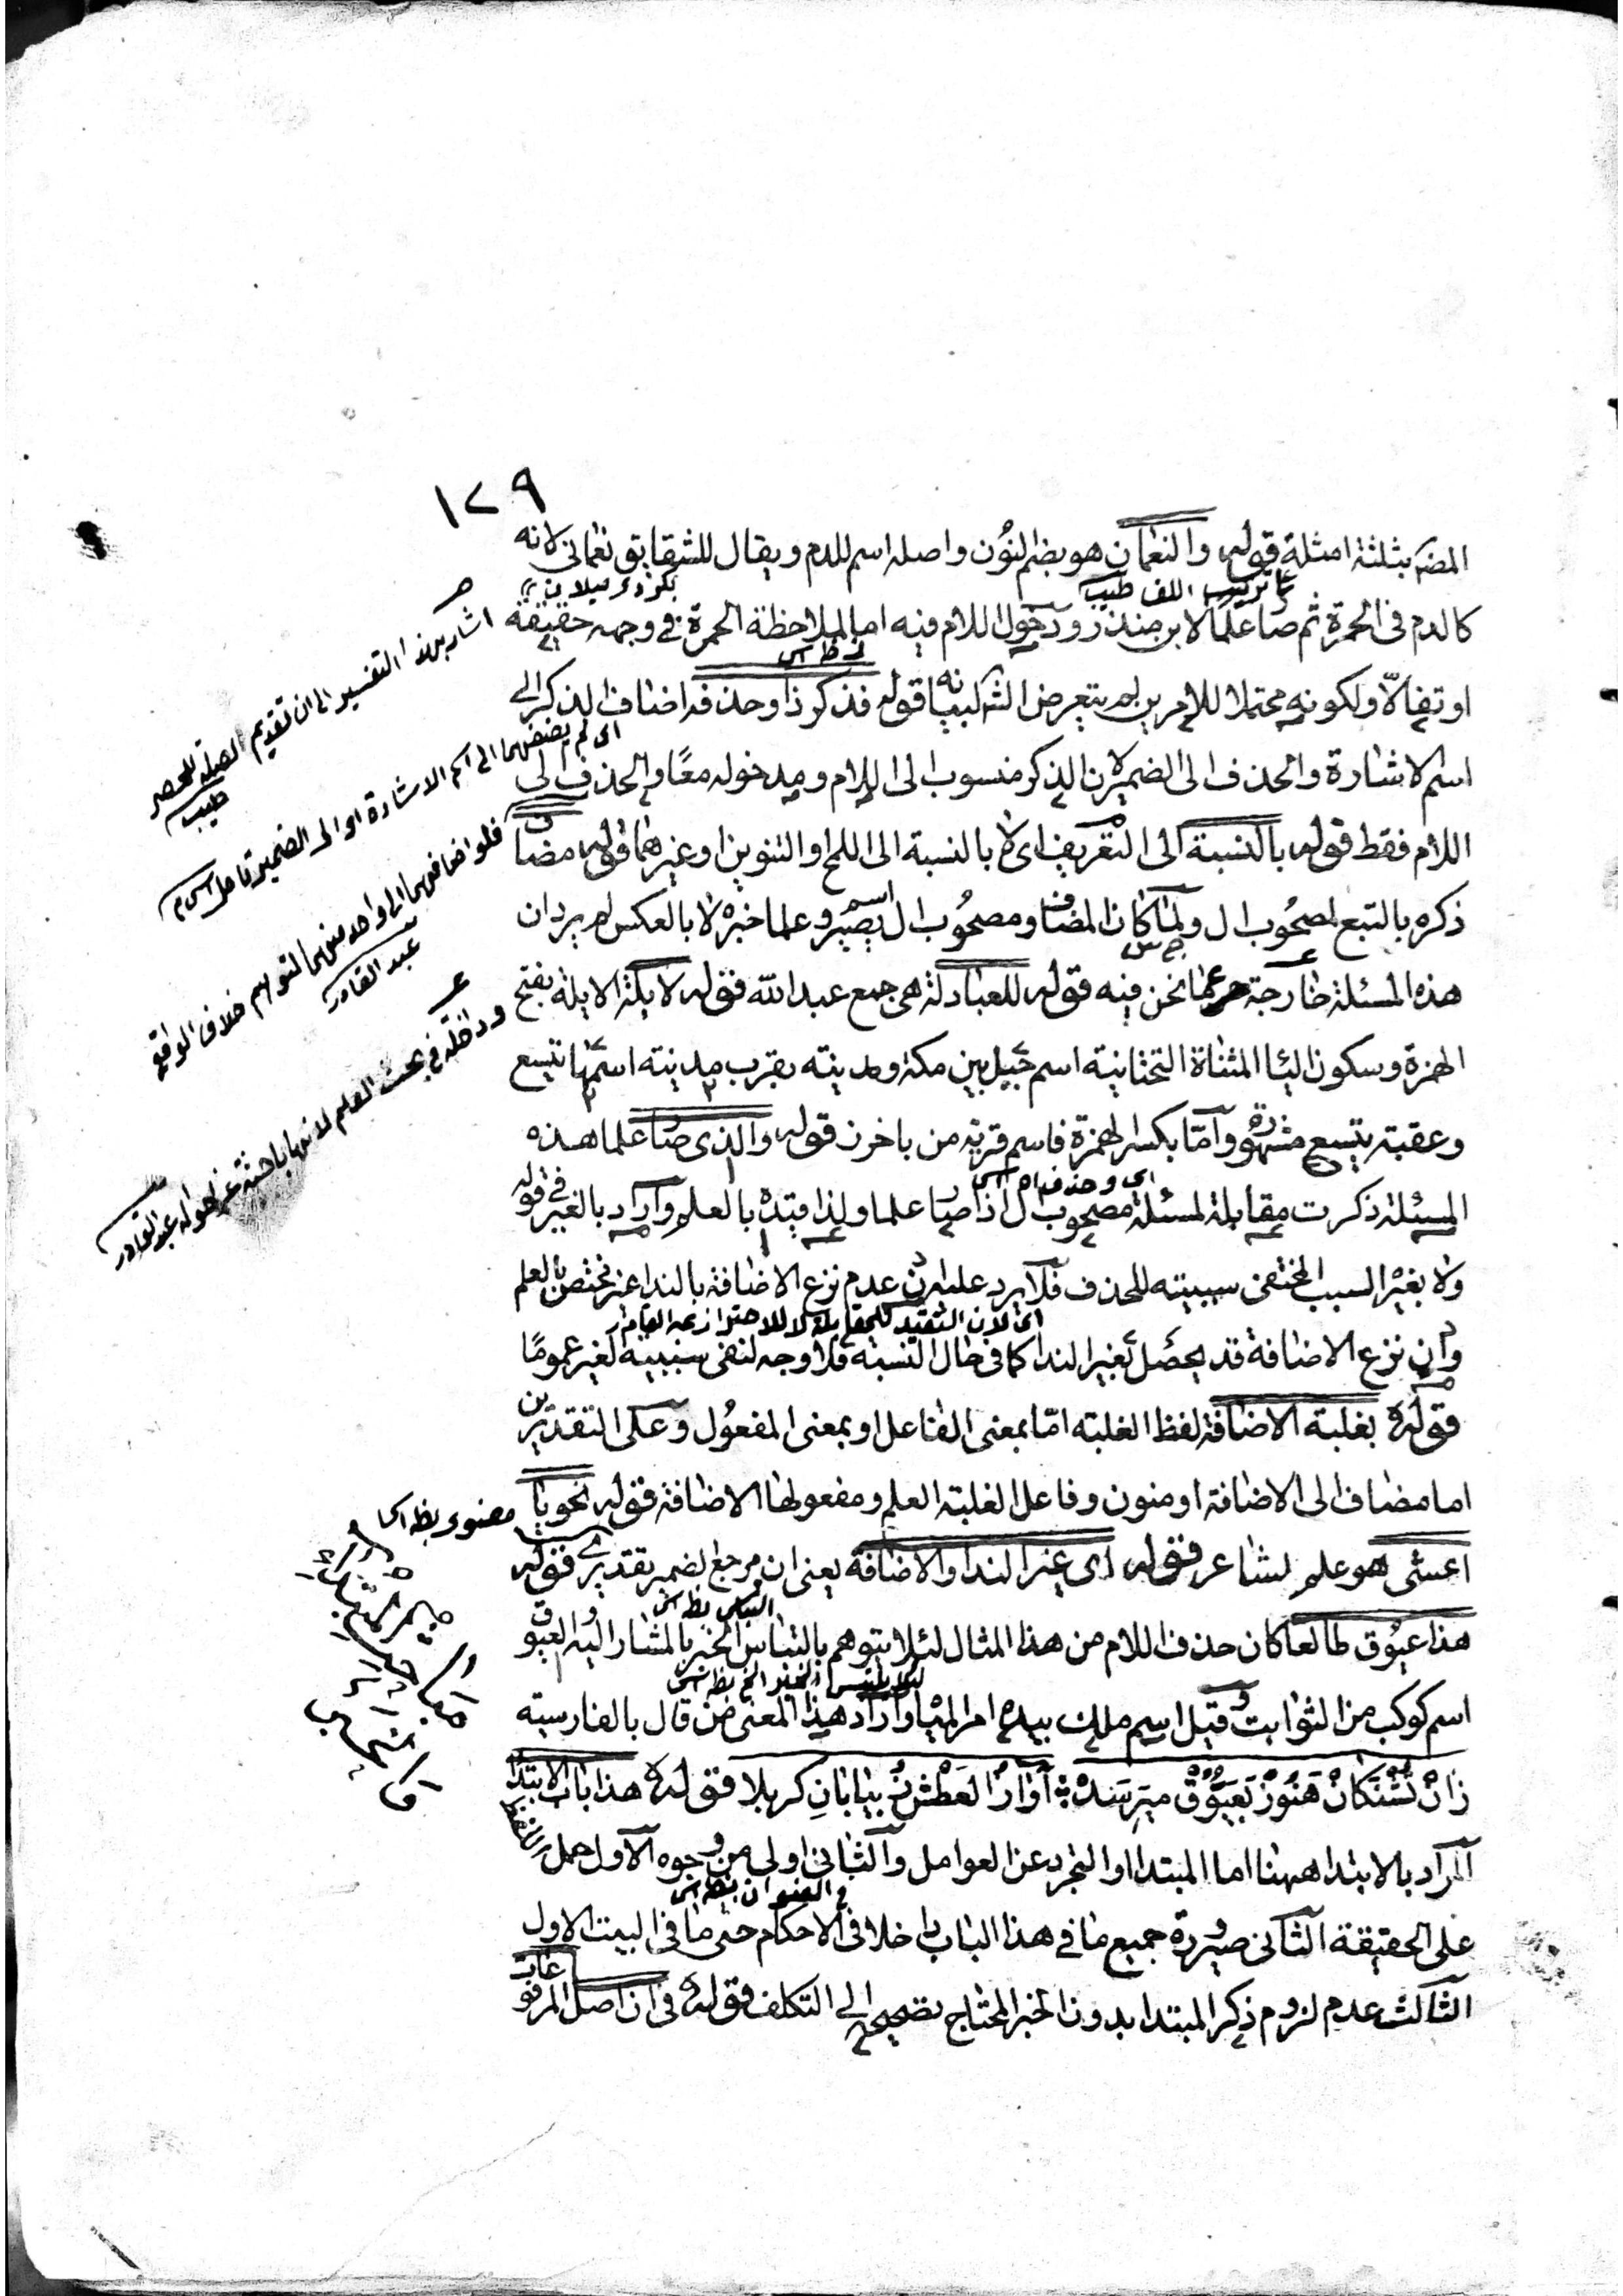 ١٢٩
المضر بثلثة امثلة قوله والنعمان هو بضم النون واصله اسم للدم ويقال للشقايق نعماني لانه
كالدم فى الحمرة ثم صا علما لابن منذر ودخول اللام فيه اما لملاحظة الحمرة فى وجهه حقيقة
او تفاٴلا ولكونه محتملا للامرين لم يتعرض الش لبيانه قوله فذكر ذا وحذفه اضاف الذكر الى
اسم الاشارة والحذف الى الضمير لان الذكر منسوب الى اللام ومدخوله معًا والحذف الى
اللام فقط قوله بالنسبة الى التعريف اى لا بالنسبة الى اللمح او التنوين او غيرهما قوله مضاف
ذكره بالتبع لمصحوب ال ولما كان المضاف ومصحوب ال اسم يصير وعلما خبره لا بالعكس لم يرد ان
هذه المسئلة خارجة عما نحن فيه قوله للعبادلة هى جمع عبد الله قوله لايلة الايلة بفتح
الهمزة وسكون اليا المثناة التحتانية اسم جبل بين مكة ومدينة بقرب مدينة اسمها تتبع
وعقبته يتبع مشهورة وامّا بكسر الهمزة فاسم قرية من باخرز قوله والذى صا علما هذه
المسئلة ذكرت مقابلة لمسئلة مصحوب ال اذا صار علما ولذا قيده بالعلم وآراد بالغير فى قوله
ولا بغير السبب المختفى سببيته للحذف فلا يرد عليه ان عدم نزع الاضافة بالندا غير مختص بالعلم
وان نزع الاضافة قد يحصل بغير الندا كما فى حال النسبة فلا وجه لنفى سببية لغير عمومًا
قوله بغلبة الاضافة لفظ الغلبة امّا بمعنى الفاعل او بمعنى المفعول وعلى التقديرين
اما مضاف الى الاضافة او منون وفاعل الغلبة العلم ومفعولها الاضافة قوله نحويا
اعشى هو علم لشاعر قوله اى غير الندا والاضافة يعنى ان مرجع الضمير تقديرى قوله
هذا عيوق طالعا كان حذف اللام من هذا المثال لئلا يتوهم بالتباس الخبر بالمشار اليه والعيوق
اسم كوكب من الثوابت وقيل اسم ملك بيده امر المياه واراد هذا المعنى من قال بالفارسية
زان تشنكان هنوز بعيوق ميرسد آواز العطش ز بيابان كربلا قوله هذا باب الابتدا
المراد بالابتدا ههنا اما المبتدا او التجرد عن العوامل والثانى اولى من وجوه الاول حمل اللفظ
على الحقيقة الثانى صيرورة جميع ما فى هذا الباب داخلا فى الاحكام حتى ما فى البيت الاول
الثالث عدم لزوم ذكر المبتدا بدون الخبر المحتاج تصحيحه الى التكلف قوله فى ان اصل المرفوعات
على ترتيب اللف طيب
اى وحذف ال
اى لان التقييد للمقابلة لا للاحتراز عبد القادر
فى العنوان
اشار بهذا التفسير الى ان تقديم الصلة للحصر
طيب
اى لم يضفهما الى اسم الاشارة او الى الضمير تامل
فلو اضافهما الى واحد منهما لتوهم خلاف الواقع
عبد القادر
وداخلة فى بحث العلم لانها باحثة عن احواله عبد القادر